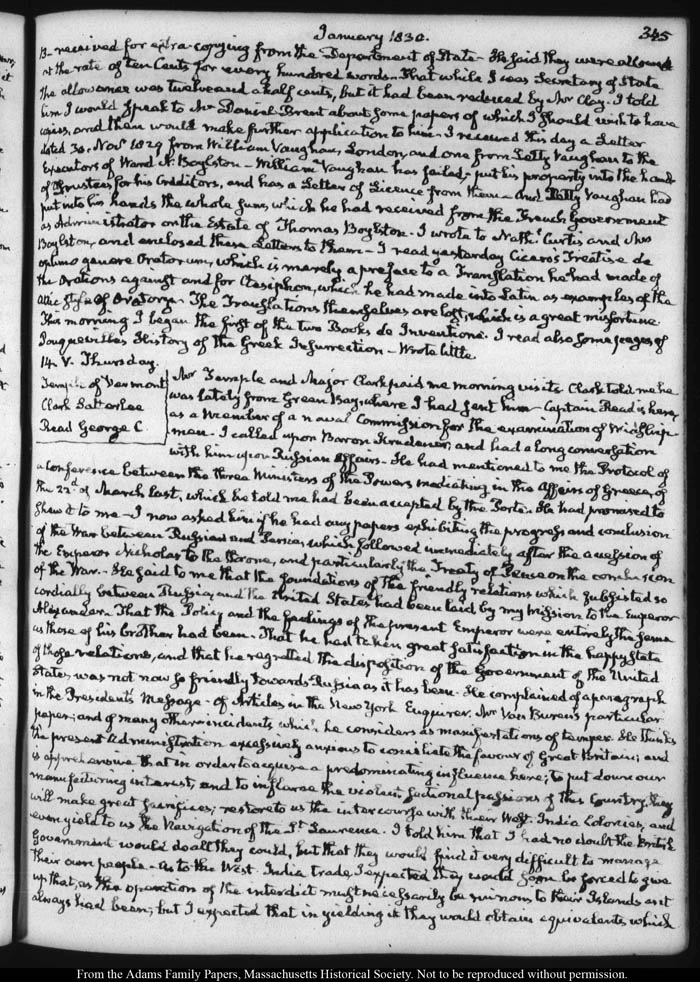 January 1830.
345
B- received for extra-copying from the Department of State- He said they were allowed
at the rate of ten Cents for every hundred words- That while I was Secretary of State
the allowance was twelve and a half cents, but it had been reduced by Mr Clay. I told
him I would speak to Mr Daniel Brent about some papers of which I should wish to have
copies, and then would make further application to him- I received this day a Letter
dated 30. Novr 1829 from William Vaughan, London, and one from Petty Vaughan to the
Executors of Ward N. Boylston- William Vaughan has failed- put his property into the hands
of Trustees for his Creditors, and has a Letter of Licence from them- and Petty Vaughan had
put into his hands the whole sum, which he had received from the French Government
as Administrator on the Estate of Thomas Boylston. I wrote to Nathl. Curtis and Mrs
Boylston, and enclosed these Letters to them- I read yesterday Cicero's Treatise de
optimo genere Oratorum, which is merely a preface to a Translation he had made of
the Orations against and for Ctesiphon, which he had made into Latin as examples of the
Attic Style of Oratory- The Translations themselves are lost, which is a great misfortune.
This morning I began the first of the two Books de Inventione. I read also some pages of
Pouqueville's History of the Greek Insurrection- Wrote little.
14. V. Thursday.
Temple of Vermont
Clark Satterlee
Read George C.
Mr Temple and Major Clark paid me morning visits Clark told me he
was lately from Green Bay, where I had sent him- Captain Read is here,
as a Member of a naval Commission for the examination of Midship-
men- I called upon Baron Krudener, and had a long conversation
with him upon Russian affairs- He had mentioned to me the Protocol of
a Conference between the three Ministers of the Powers mediating in the Affairs of Greece, of
the 22d of March last, which he told me had been accepted by the Porte. He had promised to
shew it to me- I now asked him if he had any papers exhibiting the progress and conclusion
of the War between Russia and Persia, which followed immediately after the accession of
the Emperor Nicholas to the throne, and particularly the Treaty of Peace on the conclusion
of the War.- He said to me that the foundations of the friendly relations which subsisted so
cordially between Russia, and the United States had been laid by my mission to the Emperor
Alexander. That the Policy and the feelings of the present Emperor were entirely the same
as those of his brother had been. That he had taken great satisfaction in the happy state
of those relations, and that he regretted the disposition of the Government of the United
States, was not now so friendly towards Russia as it has been- He complained of a paragraph
in the President's Message- of Articles in the New York Enquirer, Mr Van Buren's particular
paper; and of many other incidents which he considers as manifestations of temper. He thinks
the present Administration excessively anxious to conciliate the favour of Great Britain; and
is apprehensive that in order to acquire a predominating influence here; to put down our
manufacturing interest, and to inflame the violent factional passions of this Country, they
will make great sacrifices; restore to us the intercourse with their West-India Colonies, and
even yield to us the Navigation of the St. Lawrence. I told him that I had no doubt the British
Government would do all they could, but that they would find it very difficult to manage
their own people- As to the West-India trade, I expected they would soon be forced to give
up that, as the operation of the interdict must necessarily be ruinous to their Islands as it
always had been; but I expected that in yielding it they would obtain equivalents, which
From the Adams Family Papers, Massachusetts Historical Society. Not to be reproduced without permission.